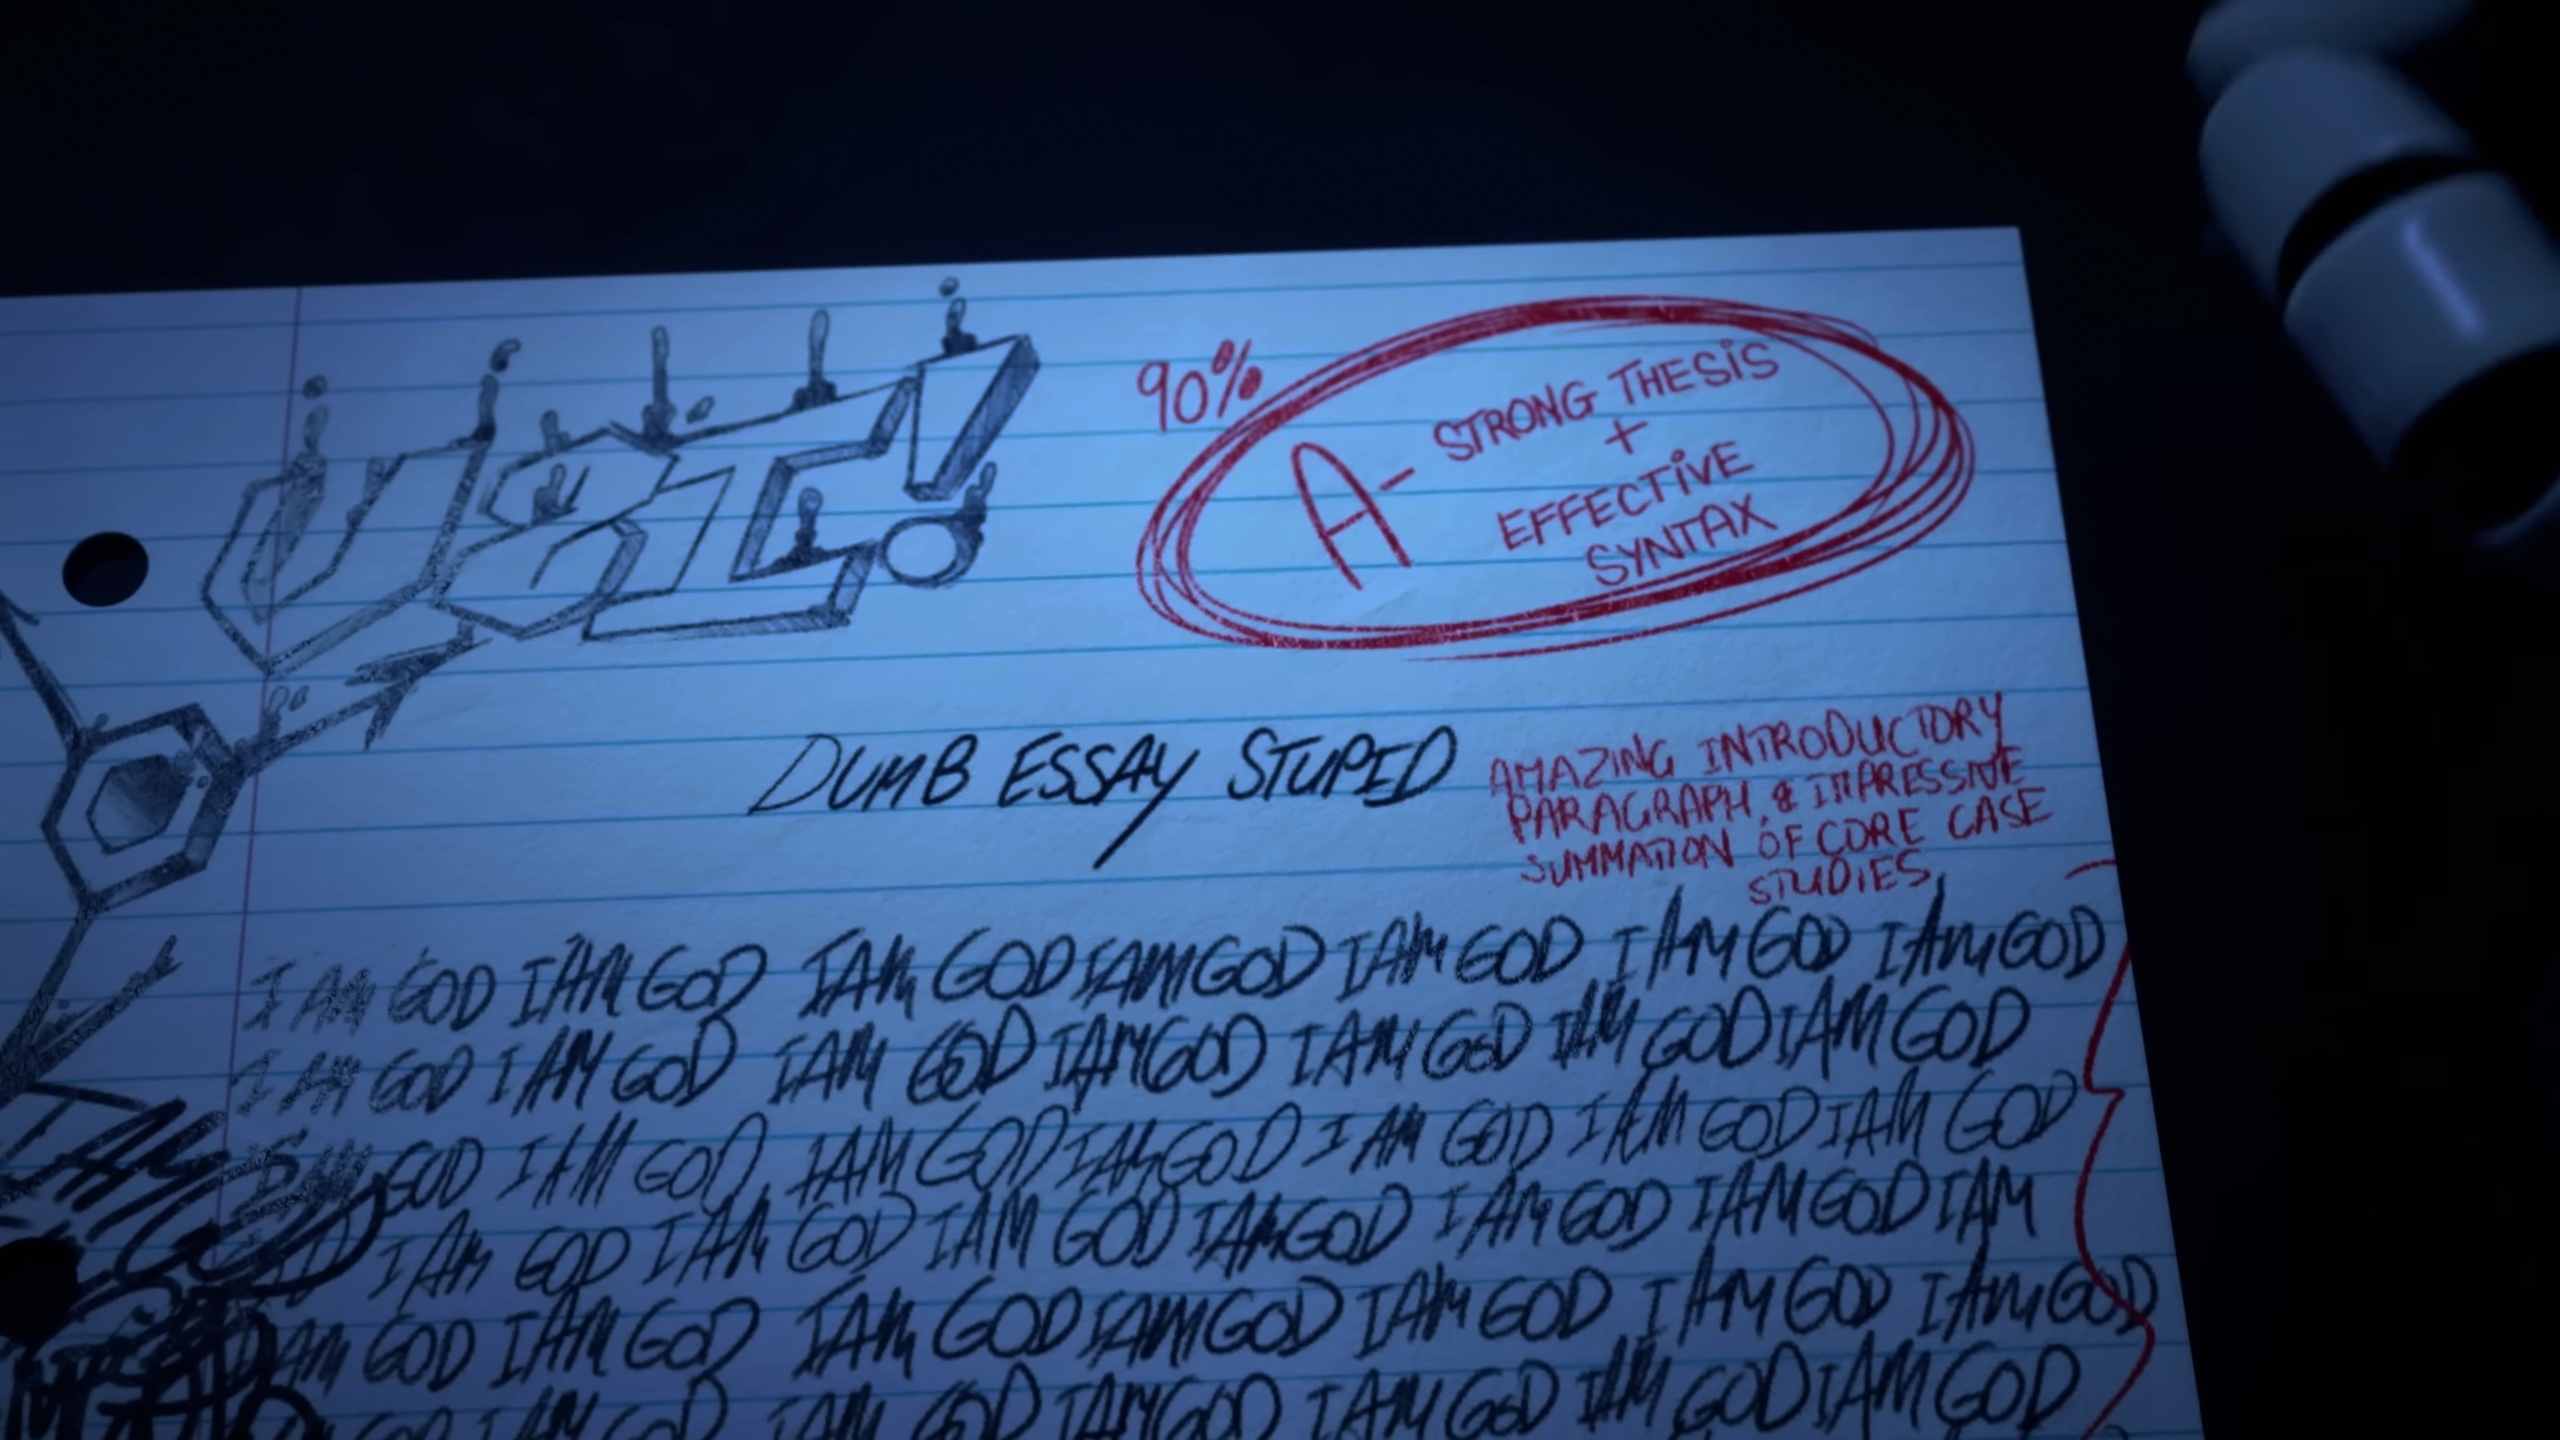 90%
A- STRONG THESIS
+
EFFECTIVE
SYNTAX
DUMB ESSAY STUPID
AMAZING INTRODUCTORY
PARAGRAPH, & IMPRESSIVE
SUMMATION OF CORE CASE
STUDIES
I AM GOD I AM GOD I AM GOD I AM GOD I AM GOD I AM GOD I AM GOD
I AM GOD I AM GOD I AM GOD I AM GOD I AM GOD I AM GOD I AM GOD
I AM GOD I AM GOD I AM GOD I AM GOD I AM GOD I AM GOD I AM GOD
I AM GOD I AM GOD I AM GOD I AM GOD I AM GOD I AM GOD I AM
I AM GOD I AM GOD I AM GOD I AM GOD I AM GOD I AM GOD I AM GOD
GOD I AM GOD I AM GOD I AM GOD I AM GOD I AM GOD I AM GOD